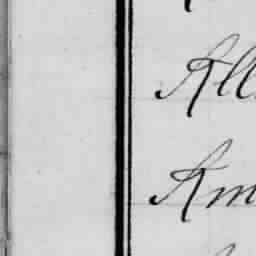 All
Am